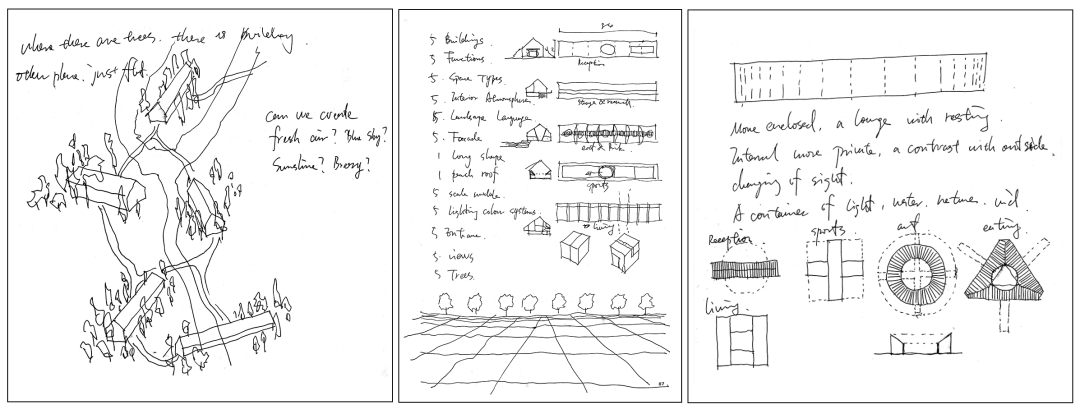 where there are trees. there is building.
other place. just flat.
can we create
fresh air? Blue sky?
Sunshine? Breezy?
5 Buildings
5 Functions
5. Space Types.
5. Interior Atmosphere.
5. Landscape Language.
5. Facade
1 long shape
1 pitch roof
5 scale
5 lighting colour systems.
5 Entrance.
5. views
5 Trees
reception
sports
living
87
More enclosed, a lounge with resting.
Internal more private, a contrast with outside.
changing of sight.
A container of light, water, nature,
Reception
sports
art
eating
living